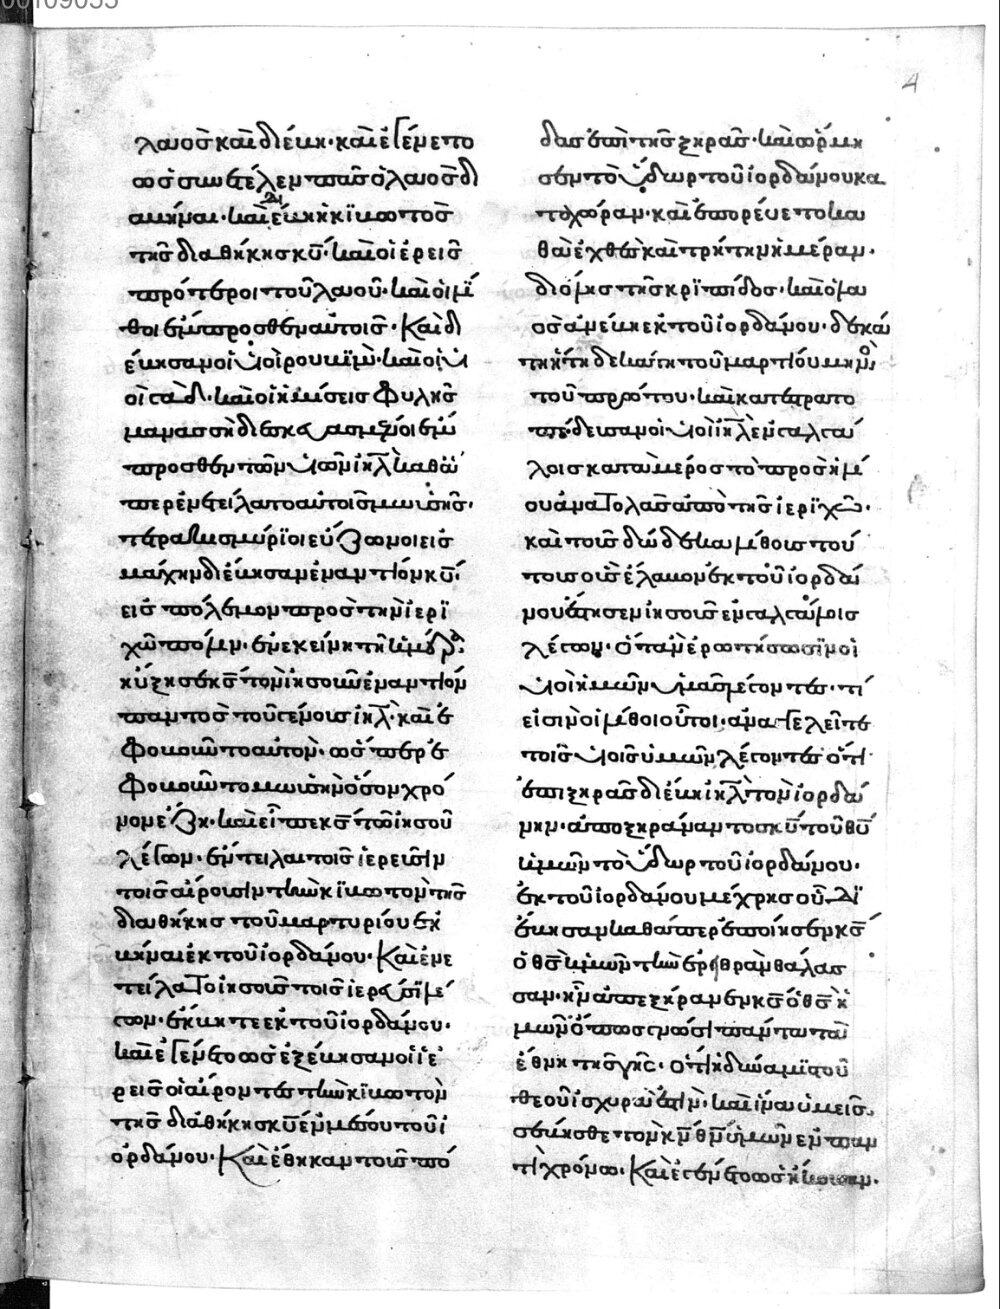 λαὸς καὶ διέβη· καὶ ἐγένετο
ὡς συνετέλεσεν πᾶς ὁ λαὸς δι
αβῆναι· καὶ διέβη ἡ κιβωτὸς
τῆς διαθήκης κυ· καὶ οἱ ἱερεῖς
πρότεροι τοῦ λαοῦ· καὶ οἱ λί
θοι ἔμπροσθεν αὐτοῖς· Καὶ δι
έβησαν οἱ υἱοὶ ρουβὶμ· καὶ οἱ υἱ
οὶ γὰδ· καὶ οἱ ἡμίσεις φυλῆς
μανασσῆ διεσκευασμένοι ἔμ
προσθεν τῶν υἱῶν ιηλ καθά
περ ἐνετείλατο αὐτοῖς μωυσῆς·
τετρακισμύριοι εὔζωνοι εἰς
μάχην διέβησαν ἐναντίον κυ
εἰς πόλεμον πρὸς τὴν ἱερι
χὼ πόλιν· ἐν ἐκείνη τῆ ἡμέρα
ηὔξησε κς τὸν ἰησοῦν ἐναντίον
παντὸς τοῦ γένους ιηλ· καὶ ἐ
φοβοῦντο αὐτὸν· ὥσπερ ἐ
φοβοῦντο μωυσῆν ὅσον χρό
νον ἔζη· καὶ εἶπε κς τῶ ἰησοῦ
λέγων· ἔντειλαι τοῖς ἱερεῦσιν
τοῖς αἴρουσιν τὴν κιβωτὸν τῆς
διαθήκης τοῦ μαρτυρίου ἐκ
βῆναι ἐκ τοῦ ἰορδάνου· Καὶ ἐνε
τείλατο ἰησοῦς τοῖς ἱερεῦσι λέ
γων· ἔκβητε ἐκ τοῦ ἰορδάνου·
καὶ ἐγένετο ὡς ἐξέβησαν οἱ ἱε
ρεῖς οἱ αἴροντες τὴν κιβωτὸν
τῆς διαθήκης κυ ἐκ μέσου τοῦ ἰ
ορδάνου· Καὶ ἔθηκαν τοὺς πό
δας ἐπὶ τῆς ξηρᾶς· καὶ ὥρμη
σεν τὸ ὕδωρ τοῦ ἰορδάνου κα
τὰ χώραν· καὶ ἐπορεύετο κα
θὰ ἐχθὲς καὶ τρίτην ἡμέραν·
δι' ὅλης τῆς κρηπίδος· καὶ ὁ λα
ὸς ἀνέβη ἐκ τοῦ ἰορδάνου· δεκά
τη τοῦ μηνὸς
τοῦ πρώτου· καὶ κατεστρατο
πέδευσαν οἱ υἱοὶ ιηλ ἐν γαλγά
λοις κατὰ μέρος τὸ πρὸς ἡλί
ου ἀνατολὰς ἀπὸ τῆς ἱεριχώ·
καὶ τοὺς δώδεκα λίθους τού
τους οὓς ἔλαβον ἐκ τοῦ ἰορδά
νου ἔστησεν ἰησοῦς ἐν γαλγάλοις
λέγων· ὅταν ἐρωτήσωσιν οἱ
υἱοὶ ἡμῶν ὑμᾶς λέγοντες· τί
εἰσιν οἱ λίθοι οὗτοι· ἀναγγελεῖτε
τοῖς υἱοῖς ὑμῶν λέγοντες ὅτι
ἐπὶ ξηρᾶς διέβη ιηλ τὸν ἰορδά
νην· ἀποξηράναντος κυ τοῦ θυ
ἡμῶν τὸ ὕδωρ τοῦ ἰορδάνου·
ἐκ τοῦ ἰορδάνου μέχρις οὗ δι
έβησαν καθάπερ ἐποίησεν κς
ὁ θς ἡμῶν τὴν ἐρυθρὰν θάλασ
σαν· ἣν ἀπεξήρανεν κς ὁ θς ἡ
μῶν ὅπως γνῶσι πάντα τὰ
ἔθνη τῆς γῆς· ὅτι ἡ δύναμις τοῦ
θεοῦ ἰσχυρά ἐστιν· καὶ ἵνα ὑμεῖς
σέβησθε τὸν κν θν ἡμῶν ἐν παν
τὶ χρόνω· Καὶ ἐγένετο ὡς ἤκουσαν·